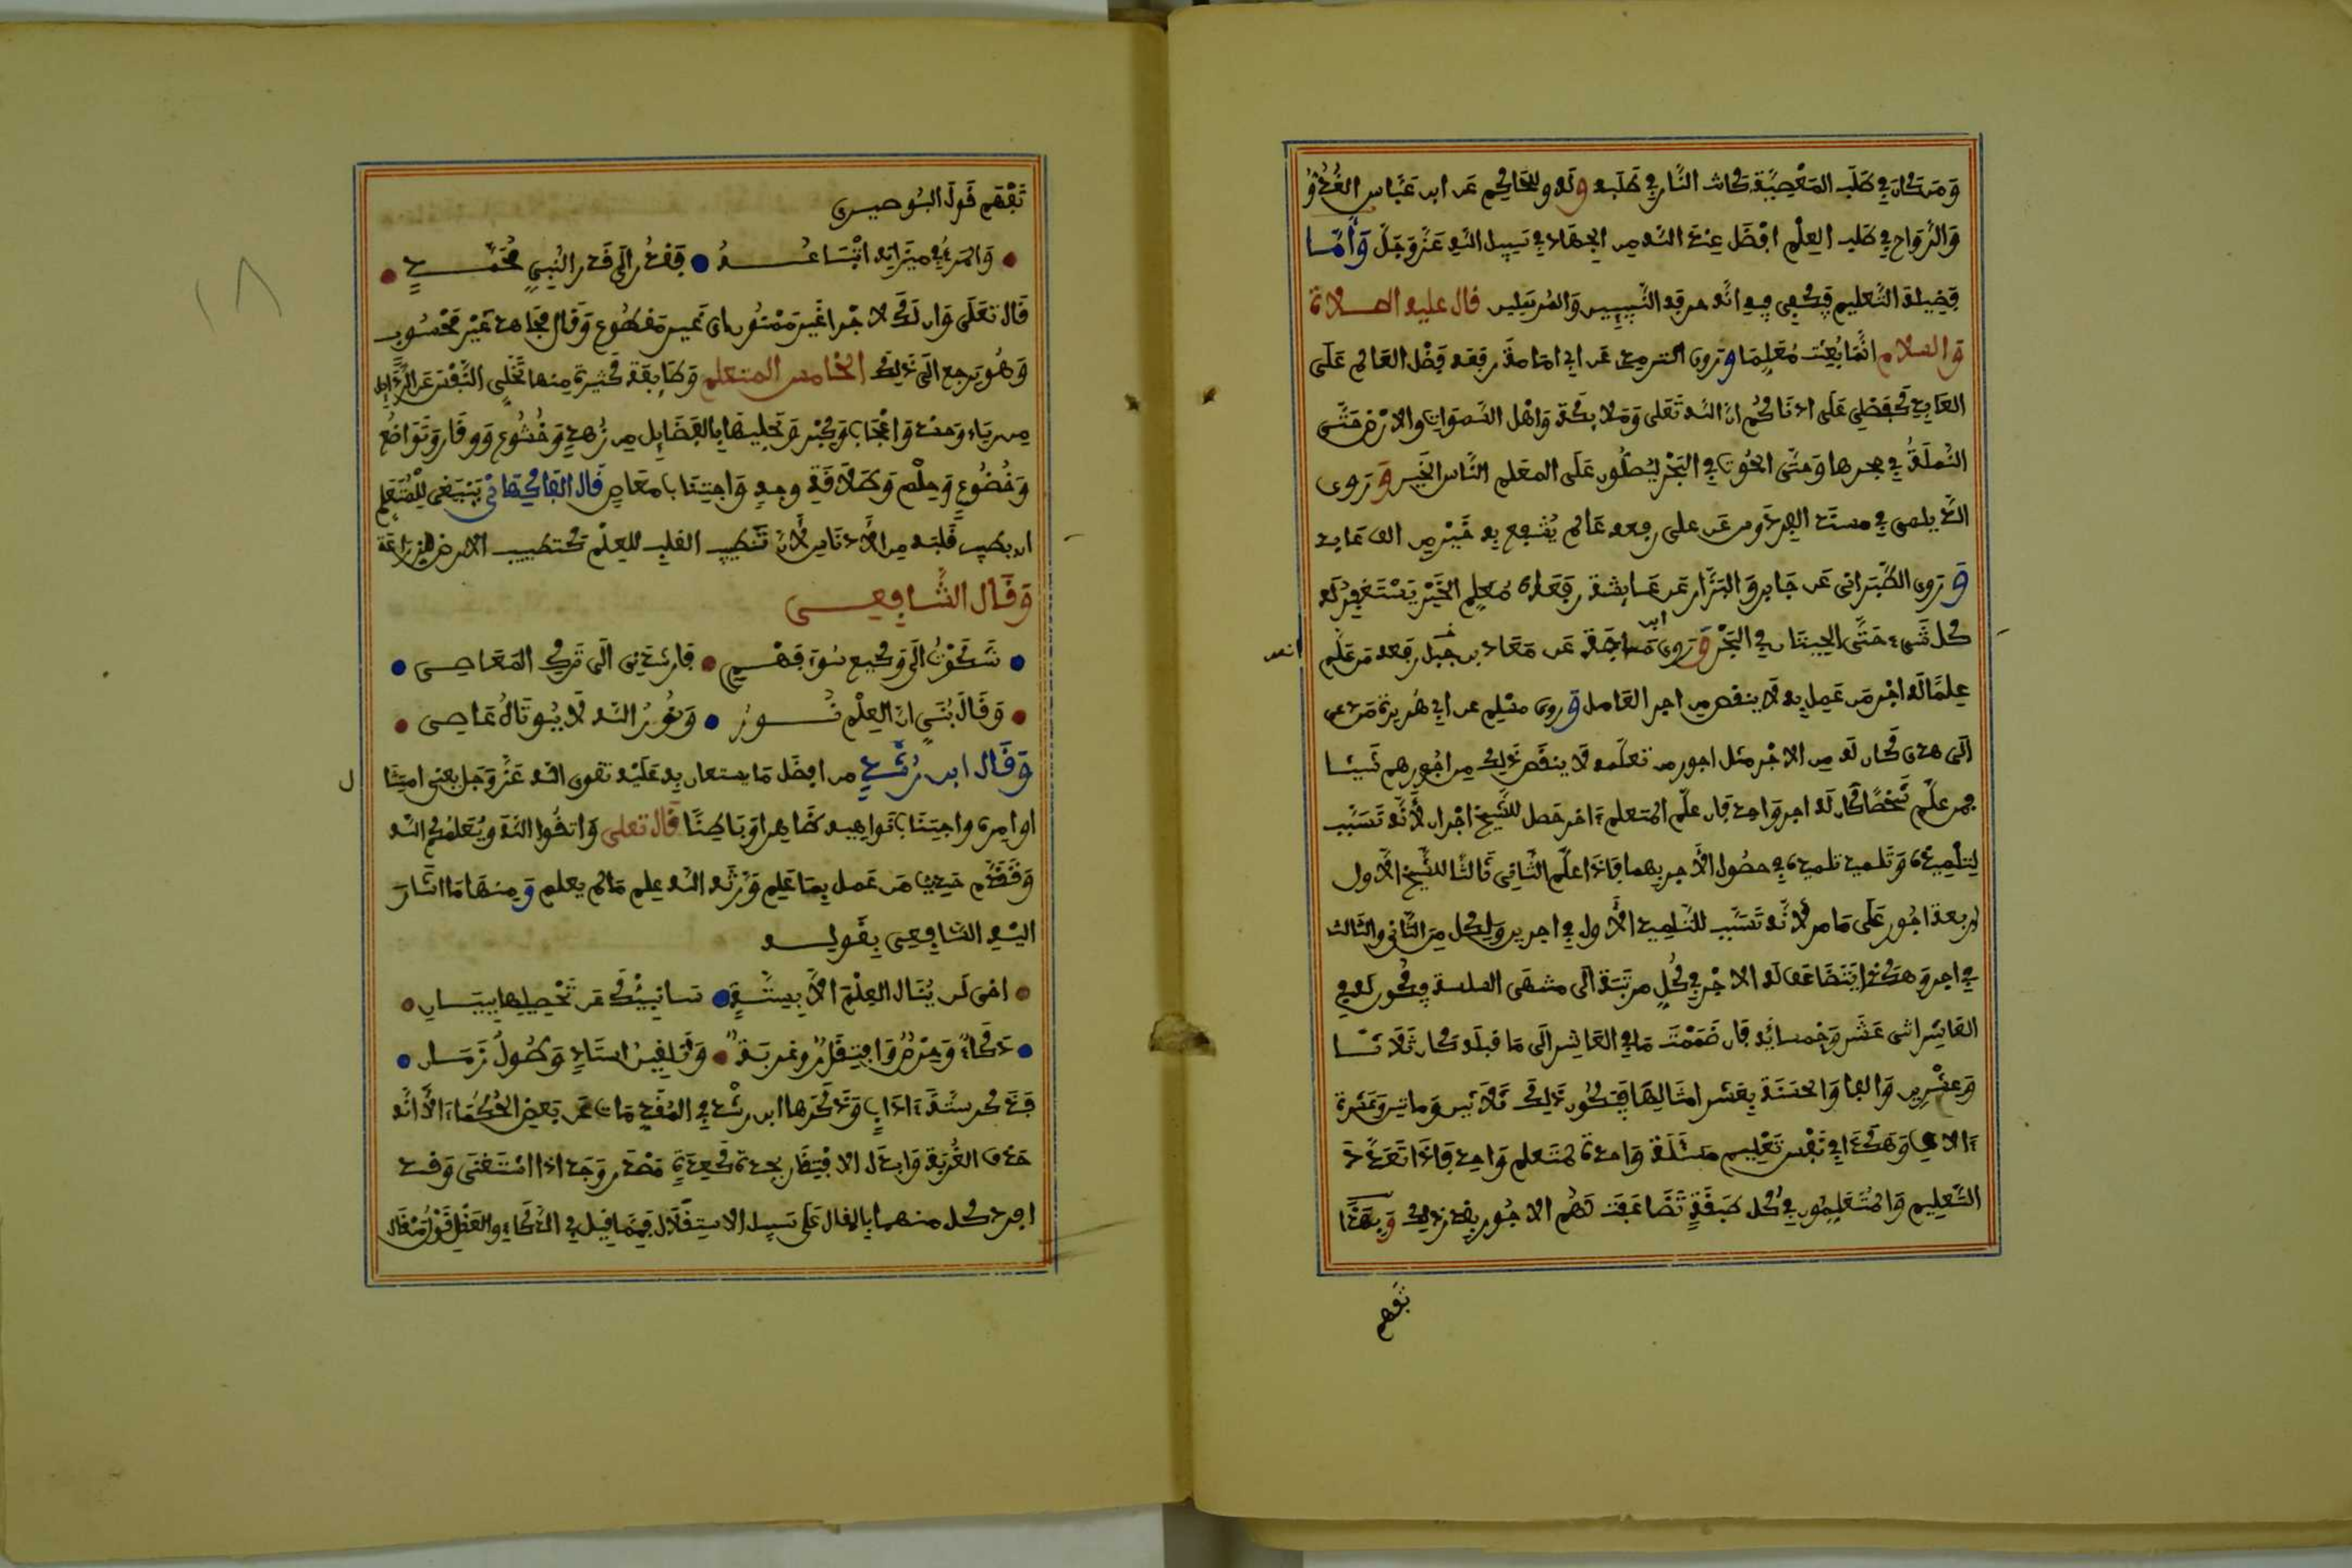 وَمَن كَانَ فِي طَلَب المَعْصِيَةِ كانت النَّار فِي طَلَبِهِ وَلَه وللحَاكِم عَن ابن عَبَّاس الغُدُوُّ
وَالرَّوَاح فِي طَلبِ العِلْمِ افْضَل عِندَ اللَّه مِن الجِهَادِ فِي سَبِيل اللَّهِ عَزَّ وَجَلَّ وَأَمَّا
فَضِيلة التَّعليم فيكفي فيه انَّه حرفة النَّبيين وَالمُرسَلين قال عليه الصلاة
وَالسلام انَّمَا بُعِثت مُعَلِّمًا وَرَوى الترمذي عَن ابي امَامة رفعه فَضْل العَالم عَلَى
العَابِدِ كَفَضْلِي عَلَى ادْنَاكُم انَّ اللَّه تَعَلَى وَمَلايِكَته وَاهْل السَّموَات والارْض حَتَّى
النَّملَةُ فِي جحرها وَحتَّى الحُوت فِي البَحْر ليُصَلُّون عَلَى المعَلم النَّاس الخَير وَرَوى
الديلمي فِي مسنَد الفِردَوس عَن على رفعه عَالم يُنْتَفع بِهِ خَيْر مِن الف عَابد
وَرَوى الطَّبَرانى عَن جَابر وَالبَزَّار عَن عَايشة رفَعَاه مُعَلِم الخَيْر يَسْتَغْفِر لَه
كل شَيءٍ حَتَّى الحِيتَان فِي البَحْر وَرَوى ابن مَاجَة عَن مُعَاذ بن جَبَل رفعه مَن عَلَّم
عِلمًا لَه اجْر مَن عَمِل بِهِ لَا ينقص مِن اجر العَامل وَروى مسْلِم عن ابي هُريرة مَن دعى
الَى هدى كَان لَه مِن الاجْر مثل اجور من تعلَّمه لَا ينقص ذَلِك مِن اجُورهم شَيئًا
فمن علَّم شَخْصًا كان لَه اجر وَاحد فان علَّم المتعلم ءاخر حَصل للشَّيخ اجْران لأنَّه تَسَبَّب
لتلْمِيذه وَتَلميذ تلميذه فِي حصُول الأجر بهما فاذا علَّم الثَّانِي ثَالثًا للشَّيخ الأول
اربعة اجُور عَلَى مَا مر لأنَّه تَسَبَّب للتَّلميذ الأول فِي اجرين وَلِكل مِن الثَّاني والثَّالث
فِي اجر وَهكَذا يتَضَاعَف له الاجْر فِي كُلِّ مرتبَة الَى منتهَى السلسلة فيكُون لَه فِي
العَاشِر اثنى عَشَر وَخمسمائه فان ضَمَمْت مَا فِي العَاشِر الَى مَا قبله كان ثَلَاثًا
وَعِشْرِين وَالفا وَالحسَنَة بِعَشر امثَالِهَا فَيَكُون ذَلِك ثَلاثين وَماتين وَعَشرة
ءَالاف وَهَكَذَا فِي نَفْس تَعْلِيم مَسْئَلَة وَاحدة لمتَعلم وَاحد فَاذَا تَعَدَّدَ
التَّعْلِيم وَالمُتَعَلِّمُون فِي كُل طَبَقَةٍ تَضَاعَفَت لَهُم الاجُور بقدر ذَلِك وَبهَذَا
تَفهم
تَفْهَم قَولَ البُوصيرى
وَالمَرءُ فِي مِيزَانِهِ اتْبَاعُــهُ فَقَدِّر الَى قَدْر النَّبِي مُحَمَّــدٍ
قَال تعَلَى وَان لَكَ لاجْرا غَيْر مَمْنُون اى غَير مَقطُوع وَقَال مجاهد غَيْر مَحْسُوب
وَهُو يَرجع الَى ذَلِكَ الخامس المتعلم وَظَايفه كَثيرة مِنها تَخَلِّي النَّفْس عَن الرَّذَايل
مِن رياءٍ وَحسَد وَاعْجَاب وَكِبْر وَتحليتهَا بالفَضَايِل مِن زُهدٍ وَخُشُوع وَوقَار وَتَوَاضُع
وَخُضُوعٍ وَحِلْم وَطَلَاقَة وجه وَاجتِنَاب مَعَاصٍ قَال الفاكِهَانى يَنْبَغى لِلْمُتَعَلِّمِ
ان يطيب قَلبَه مِن الأدنَاس لأنَّ تَطييب القلب للعِلْم كتطييب الارض للزراعَة
وَقَال الشَّافِعــى
شَكَوْتُ الَى وَكيع سُوءَ فَهْمِــى فَارشَدنِى الَى تَرك المَعَاصِى
وَقَالَ بُنَيَّ انَّ العِلْم نُــورٌ وَنُورُ اللَّه لَا يُوتَاهُ عَاصِى
وَقَال ابن رُشْــدٍ من افضَل مَا يستعان بِه عَلَيْه تقوى اللَّه عَزَّ وَجَل يعنى امتِثَا
ل
اوامِره واجتنَاب نَواهِيه ظَاهِرا وَبَاطِنًا قَال تعلى وَاتقُوا اللَّه وَيُعَلمُكُم اللَّه
وَتَقَدَّم حَديث مَن عَمل بِمَا عَلِم وَرَّثه اللَّه عِلم مَا لم يعلم وَمِنهَا مَا اشَارَ
اليْه الشَّافِعِى بِقَوله
اخى لَن يُنَال العِلْم الاَّ بِسِتَّــةٍ سَانبيْكَ عَن تَحْصِيلِهَا بِبَيَان
ذَكَاءٌ وَحِرْصٌ وَافتِقَارٌ وغربَةٌ وَتَلقِين استَاذٍ وَطُولُ زَمَــان
فَذَكر سِتَّةَ ءادَابٍ وَذَكَرهَا ابن رشْد فِي المُقَدِّمَات عَن بَعض الحُكمَاء الاَّ انَّه
حَذف الغُرْبَة وَابدَل الافتِقَار بجدة كَعِدَةٍ مَصْدَر وَجَد اذا اسْتَغْنَى وَقَد
افرد كـل منهما بالمقال عَلَى سَبيل الاستِقْلَال فَمِمَّا قِيل فِي الذَّكَاءِ والحَفظِ قَوْل مَن قَال